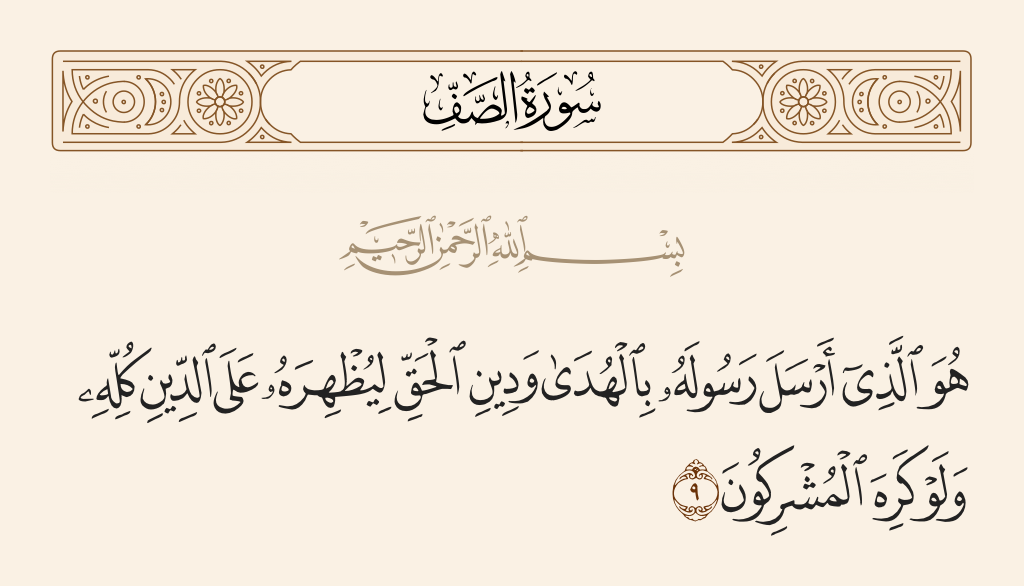 سُورَةُ الصَّفِّ
بِسْمِ ٱللَّهِ ٱلرَّحْمَٰنِ ٱلرَّحِيمِ
هُوَ ٱلَّذِىٓ أَرْسَلَ رَسُولَهُۥ بِٱلْهُدَىٰ وَدِينِ ٱلْحَقِّ لِيُظْهِرَهُۥ عَلَى ٱلدِّينِ كُلِّهِۦ
وَلَوْ كَرِهَ ٱلْمُشْرِكُونَ ٩